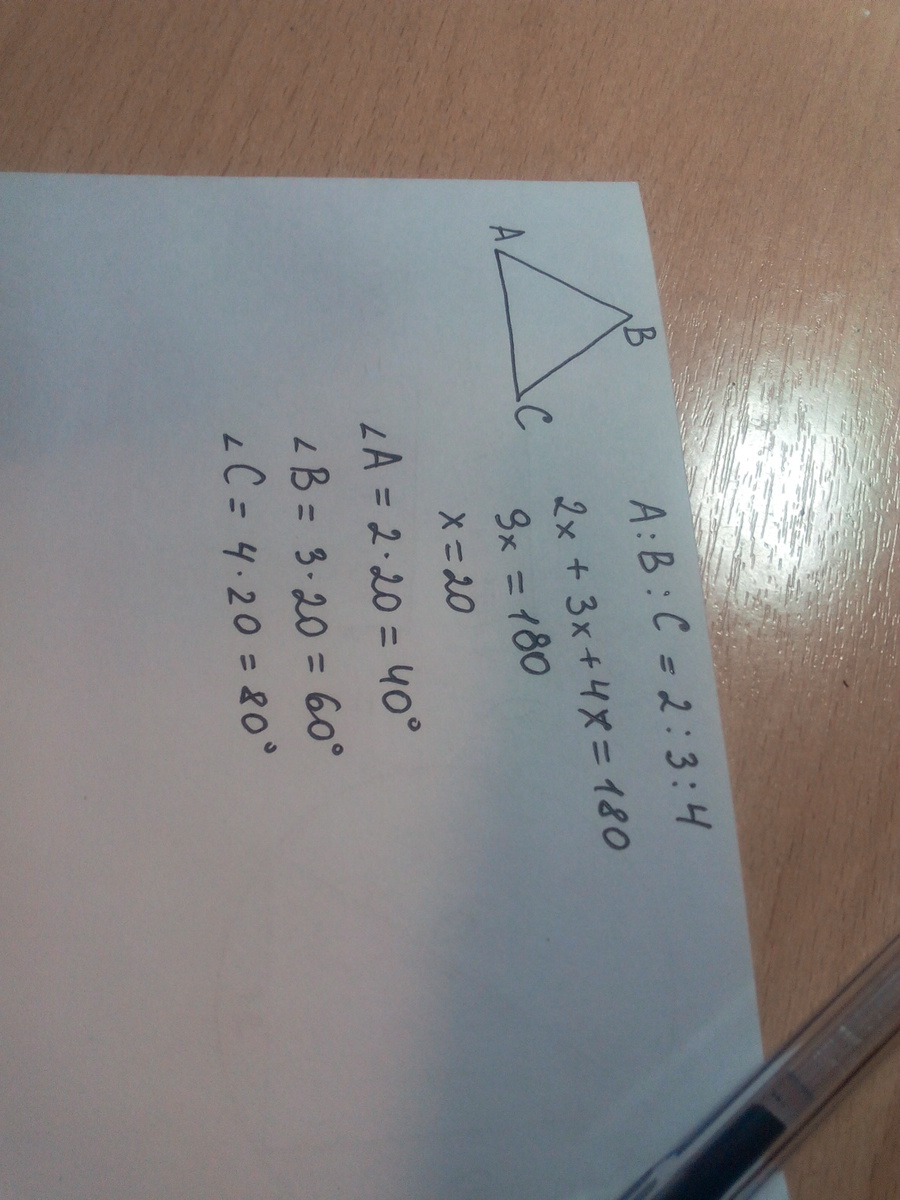 B
A
C
A:B:C = 2:3:4
2x + 3x + 4x = 180
9x = 180
x = 20
∠A = 2·20 = 40°
∠B = 3·20 = 60°
∠C = 4·20 = 80°